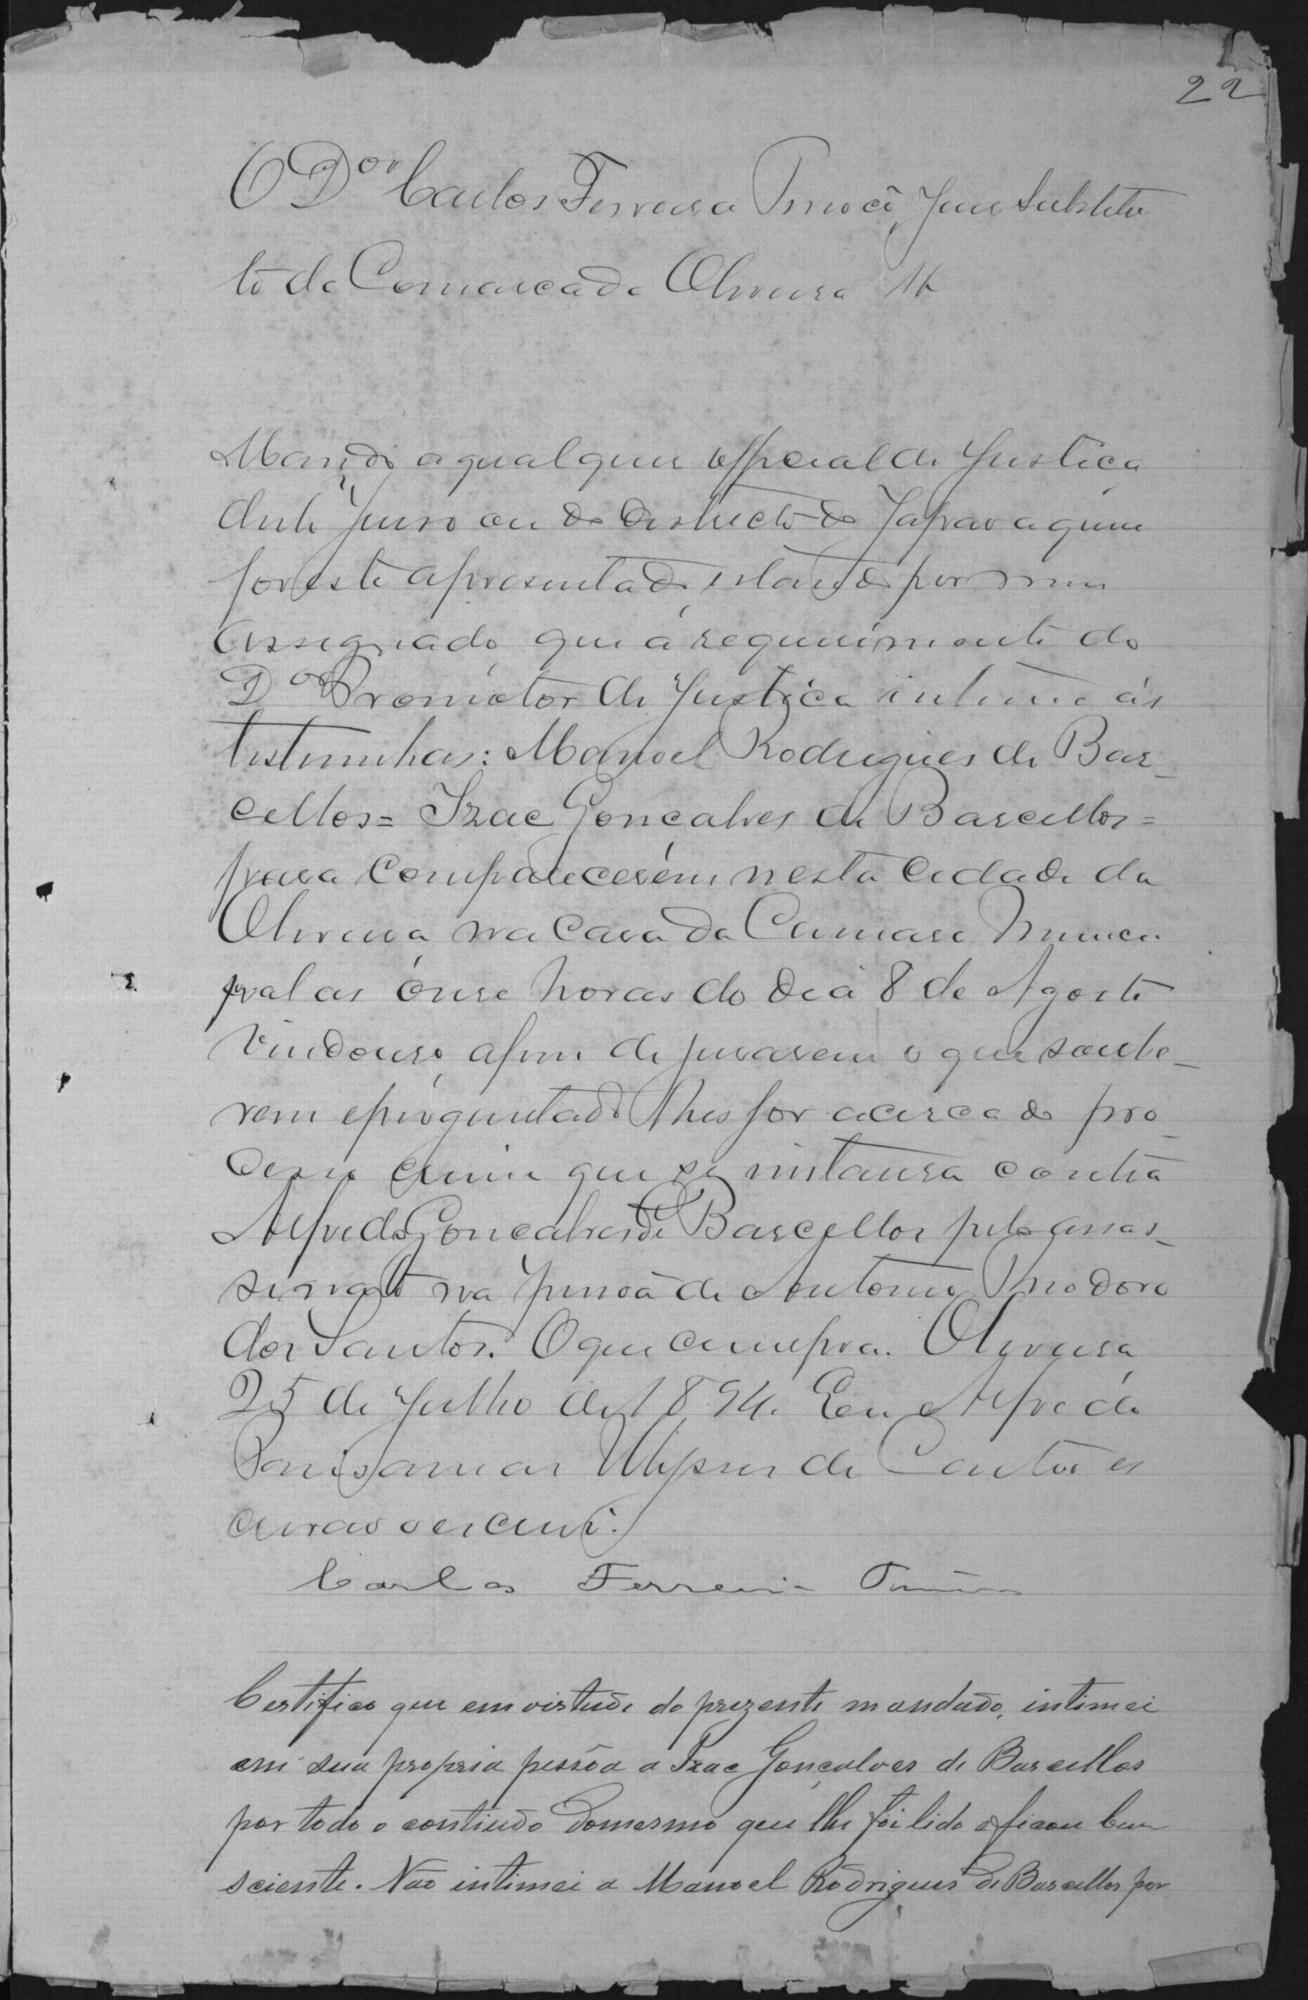 22
O Dor Carlos Ferreira Tinôco, Juiz Substitu
to da Comarca da Oliveira &
Mando a qualquer official de Justiça
deste Juiso ou do districto do Japão a quem
for este apresentado, estando por mim
assignado que á requerimento do
Dor Promotor de Justiça intime ás
testimunhas: Manoel Rodrigues de Bar-
cellos = Izac Gonçalves de Barcellos =
para comparecerem nesta cidade da
Oliveira na Casa da Camara Munici
pal as onse horas do dia 8 de Agosto
vindouro, afim de jurarem o que soube-
rem e pirguntado lhes for acerca do pro
cesso crime que se instaura contra
Alfredo Gonçalves de Barcellos pelo assas-
sinato na pessoa de Antonio Theodoro
dos Santos. O que cumpra. Oliveira
25 de Julho de 1894. Eu Alfredo
Ulysses de Castro es
crivão o escrevi.
Carlos Ferreira Tinôco
Certifico que em virtude do prezente mandado, intimei
em sua propria pessôa a Izac Gonçalves de Barcellos
por todo o contiudo do mesmo que lhe foi lido e ficou bem
sciente. Não intimei a Manoel Rodrigues de Barcellos por